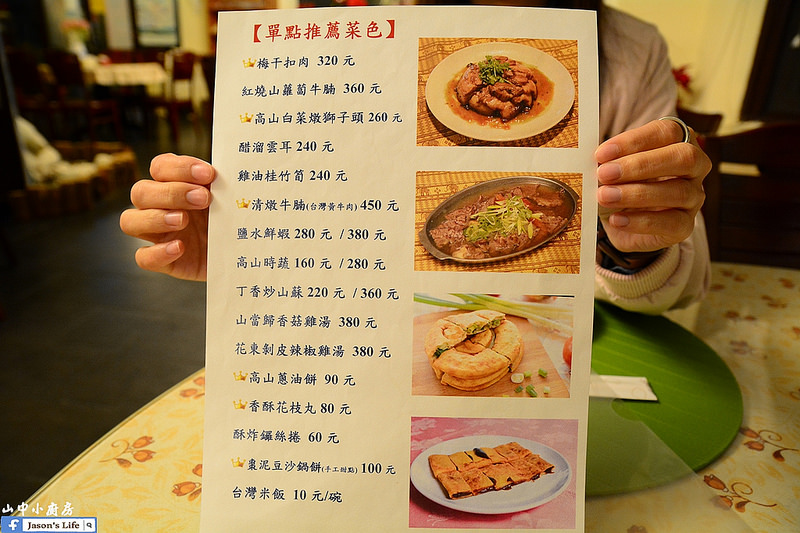 【單點推薦菜色】
梅干扣肉 320 元
紅燒山蘿蔔牛腩 360 元
高山白菜燉獅子頭 260 元
醋溜雲耳 240 元
雞油桂竹筍 240 元
清燉牛腩(台灣黃牛肉) 450 元
鹽水鮮蝦 280 元 / 380 元
高山時蔬 160 元 / 280 元
丁香炒山蘇 220 元 / 360 元
山當歸香菇雞湯 380 元
花東剝皮辣椒雞湯 380 元
高山蔥油餅 90 元
香酥花枝丸 80 元
酥炸鑼絲捲 60 元
棗泥豆沙鍋餅(手工甜點) 100 元
台灣米飯 10 元/碗
山中小廚房
f Jason's Life